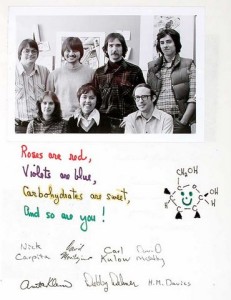 Roses are red,
Violets are blue,
Carbohydrates are sweet,
And so are you!
CH₂OH
OH
H
Nick
Carpita
David
Carl
Kulow
David
Debby Delmer
H.M. Davies